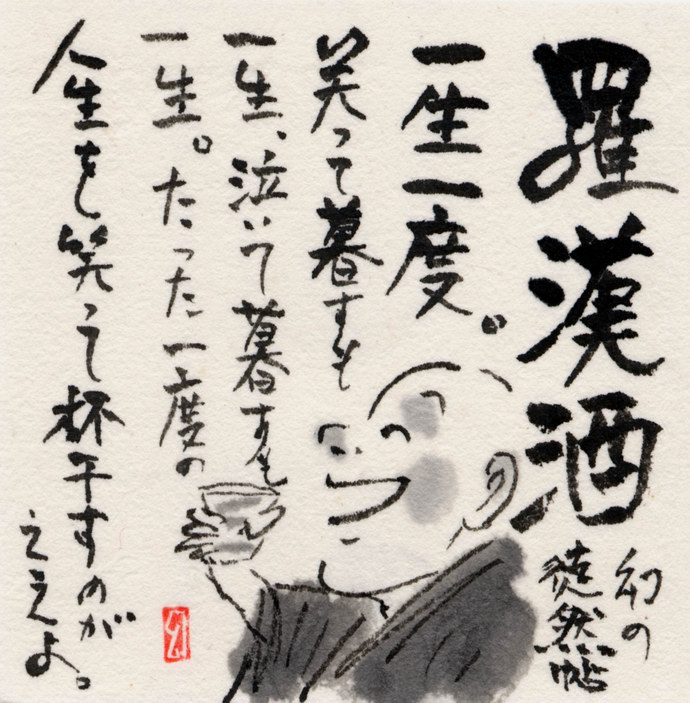 羅漢酒
幻の
徒然帖
一生一度。
笑って暮すも
一生、泣いて暮すも
一生。たった一度の
人生を笑って杯干すのが
ええよ。